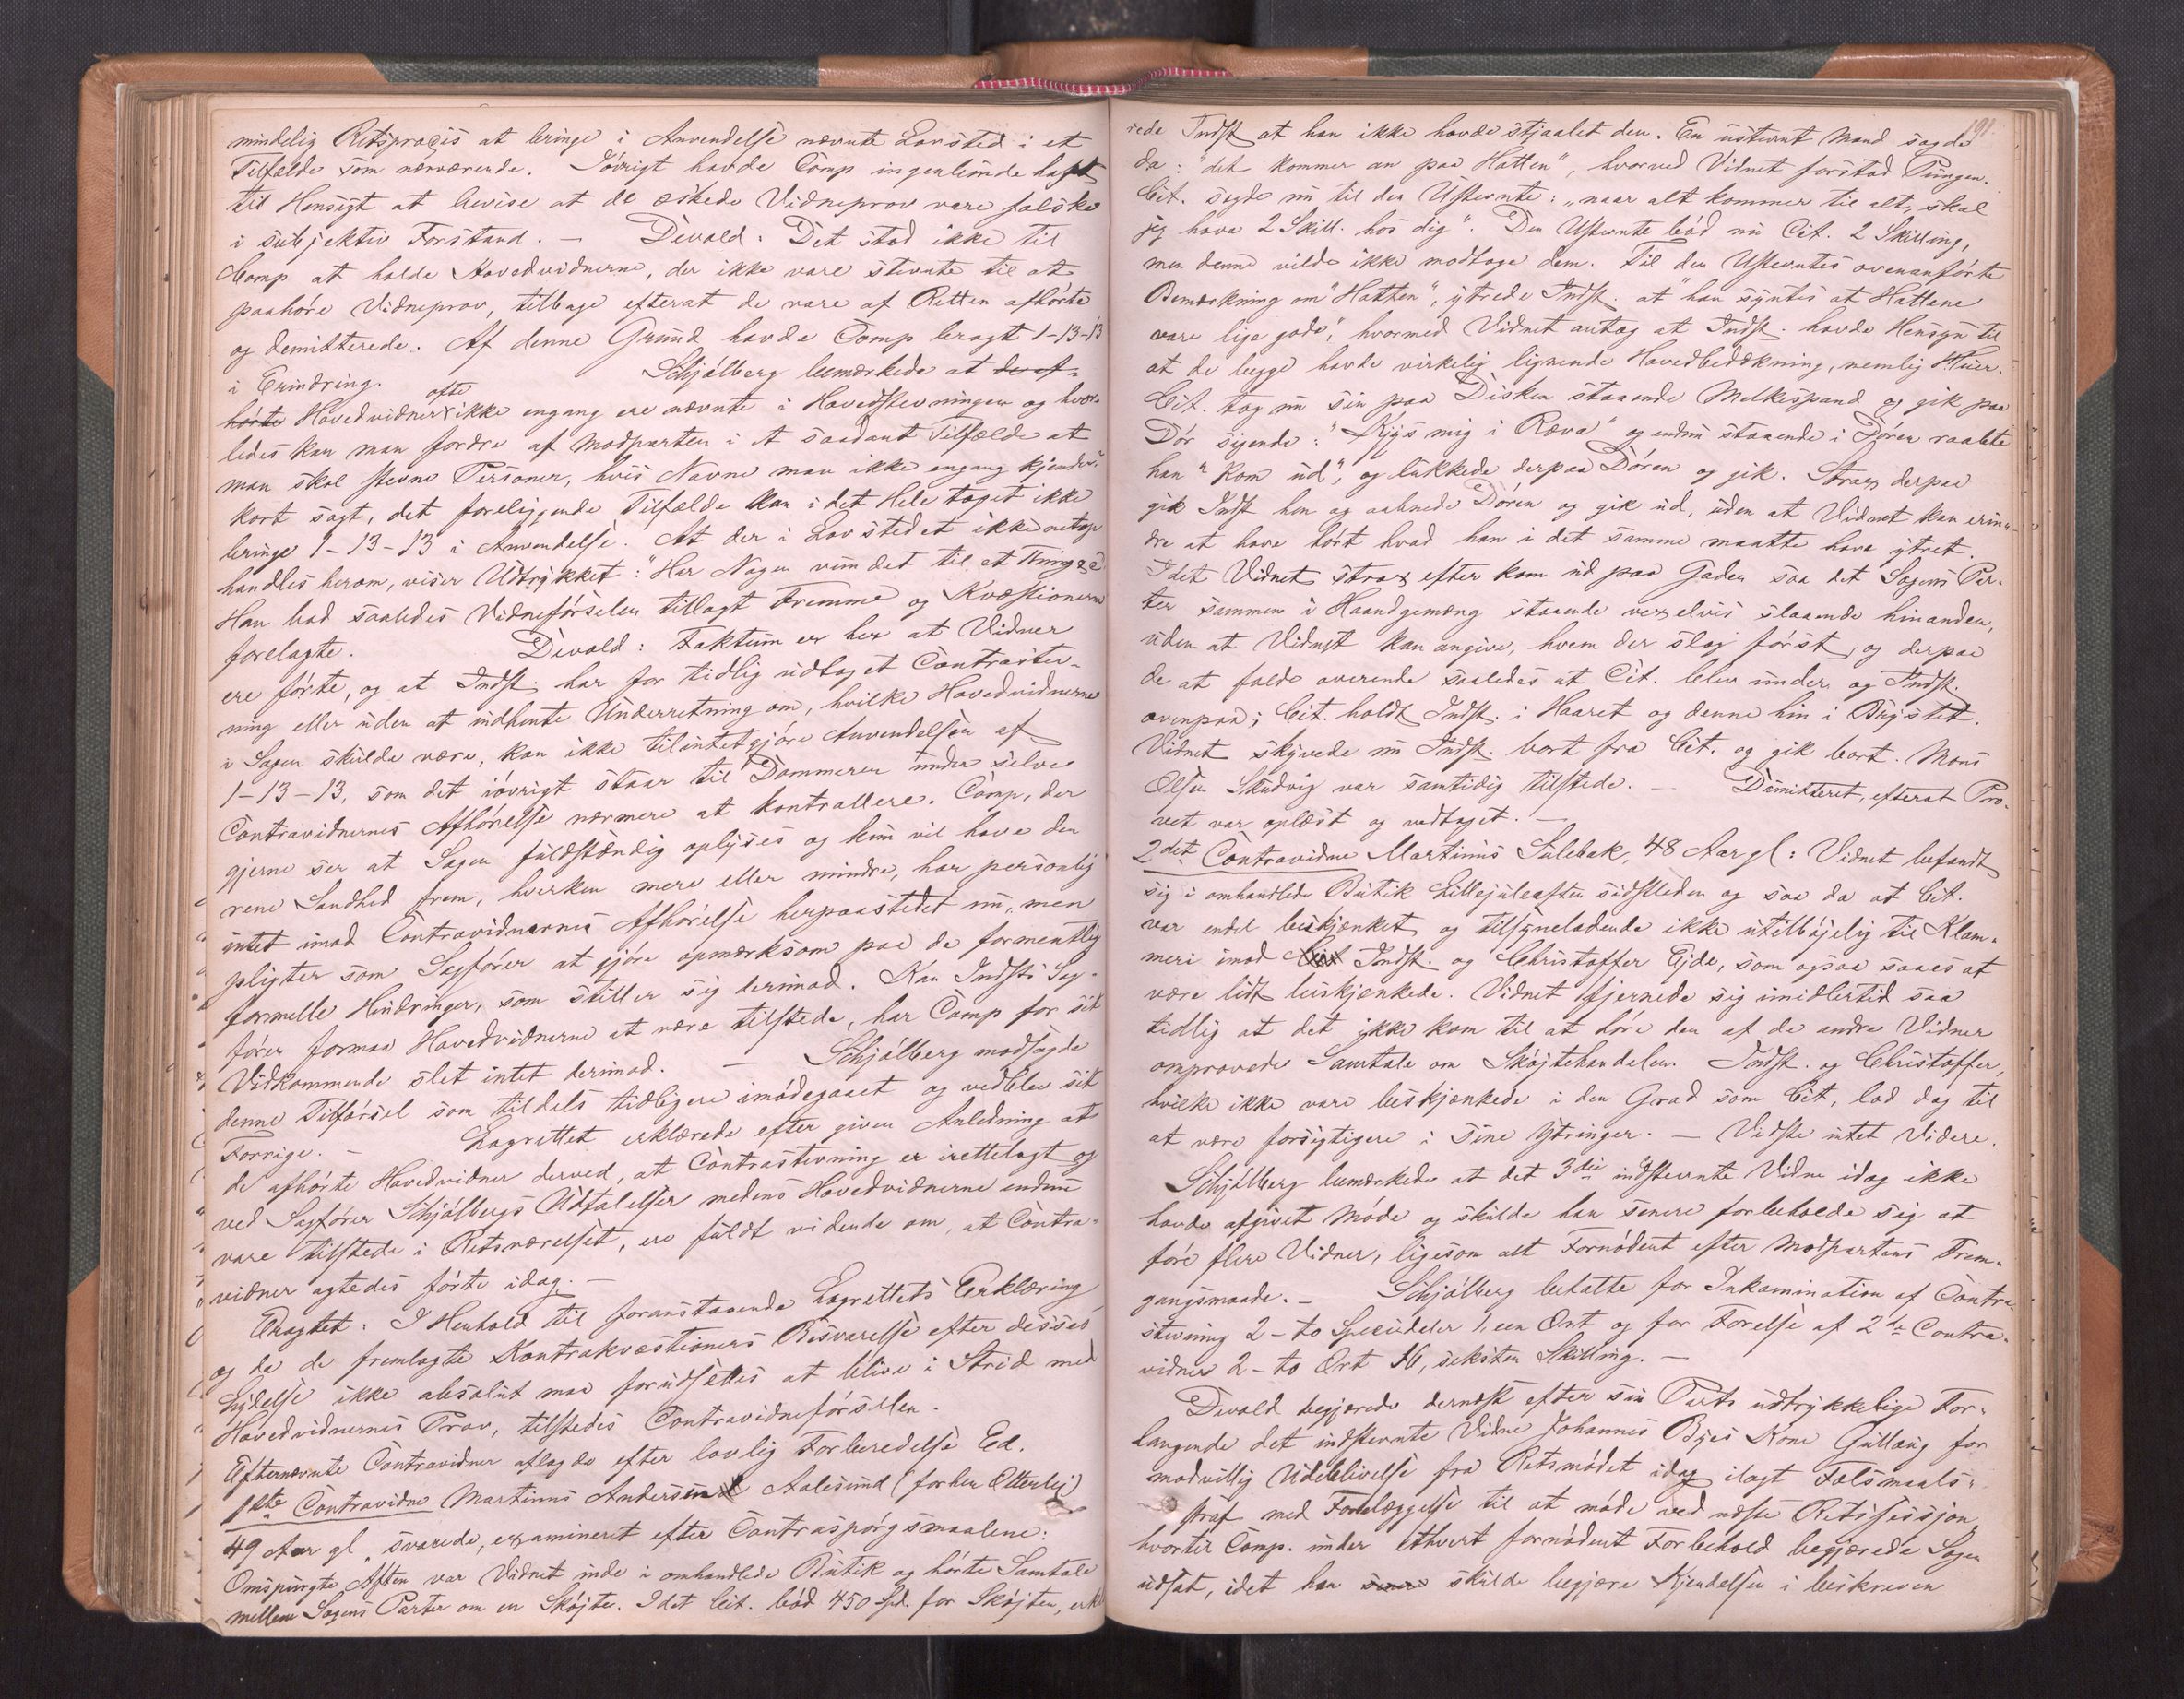 mindelig Retspraxis at bringe i Anvendelse nævnte Lovsted i et
Tilfælde som nærværende. Iøvrigt havde Comp ingenlunde haft
til Hensigt at bevise at de æskede Vidneprov vare falske
i subjektiv Forstand. — Devold: Det stod ikke til
Comp at holde Hovedvidnerne, der ikke vare stevnte til at
paahøre Vidneprov, tilbage efterat de vare af Retten afhørte
og demitterede. Af denne Grund havde Comp bragt 1-13-13
i Erindring. Schjølberg bemærkede at de af-
hørte Hovedvidner ofte ikke engang ere nævnte i Hovedstevningen og hvor-
ledes kan man fordre af Modparten i et saadant Tilfælde at
man skal stevne Personer, hvis Navne man ikke engang kjender?
kort sagt, det foreliggende Tilfælde kan i det Hele taget ikke
bringe 1-13-13 i Anvendelse. At der i Lovstedet ikke netop
handles herom, viser Udtrykket: "Har Nogen vundet til et Ting &c"
Han bad saaledes Vidneførselen tillagt Fremme og Kvæstionerne
forelagte. Devold: Faktum er her at Vidner
ere førte, og at Indst. har for tidlig udtaget Contrastev-
ning eller uden at indhente Underretning om, hvilke Hovedvidnerne
i Sagen skulde være, kan ikke tilintetgjøre Anvendelsen af
1-13-13, som det iøvrigt staar til Dommeren under selve
Contravidnernes Afhørelse nærmere at kontrollere. Comp, der
gjerne ser at Sagen fuldstændig oplyses og kun vil have den
rene Sandhed frem, hverken mere eller mindre, har personlig
intet imod Contravidnernes Afhørelse herpaastedet nu, men
pligter som Sagfører at gjøre opmærksom paa de formentlig
formelle Hindringer, som stiller sig derimod. Kan Indsts Sag-
fører formaa Hovedvidnerne at være tilstede, har Comp for sit
Vidkommende slet intet derimod. — Schjølberg modsagde
denne Tilførsel som tildels tidligere imødegaaet og vedblev sit
Forrige. — Lagrettet erklærede efter given Anledning at
de afhørte Hovedvidner derved, at Contrastevning er irettelagt og
ved Sagfører Schjølbergs Udtalelser medens Hovedvidnerne endnu
vare tilstede i Retsværelset, ere fuldt vidende om, at Contra-
vidner agtedes førte idag. —
Eragtet: I Henhold til foranstaaende Lagrettets Erklæring
og da de fremlagte Kontrakvæstioners Besvarelse efter disses
Lydelse ikke absolut maa forudsættes at blive i Strid med
Hovedvidnernes Prov, tilstedes Contravidneførselen.
Efternævnte Contravidner aflagde efter lovlig Forberedelse Ed.
1ste Contravidne Martinus Andersen Aalesund (forhen Otterlei)
49 Aar gl. svarede, examineret efter Contraspørgsmaalene:
Omspurgte Aften var Vidnet inde i omhandlede Butik og hørte Samtale
mellem Sagens Parter om en Skøjte. Idet Cit. bød 450 Spd. for Skøjten, erklæ-
191.
rede Indst at han ikke havde stjaalet den. En ustevnt Mand sagde
da: "det kommer an paa Hatten", hvorved Vidnet forstod Pungen.
Cit. sagde nu til den Ustevnte: "naar alt kommer til alt, skal
jeg have 2 Skill. hos dig". Den Ustevnte bød nu Cit. 2 Skilling,
men denne vilde ikke modtage dem. Til den Ustevntes ovenanførte
Bemærkning om "Hatten", ytrede Indst. at "han syntes at Hattane
vare lige gode", hvormed Vidnet antog at Indst. havde Hensyn til
at de begge havde virkelig lignende Hovedbedækning, nemlig Huer.
Cit. tog nu sin paa Disken staaende Melkespand og gik paa
Dør sigende: "Kys mig i Ræva" og endnu staaende i Døren raabte
han "kom ud", og lukkede derpaa Døren og gik. Strax derpaa
gik Indst hen og aabnede Døren og gik ud, uden at Vidnet kan erin-
dre at have hørt hvad han i det samme maatte have ytret.
Idet Vidnet strax efter kom ud paa Gaden saa det Sagens Par-
ter sammen i Haandgemæng staaende vexelvis slaaende hinanden,
uden at Vidnet kan angive, hvem der slog først, og derpaa
de at falde overende saaledes at Cit. blev under og Indst.
ovenpaa; Cit. holdt Indst. i Haaret og denne hin i Brystet.
Vidnet skyvede nu Indst. bort fra Cit. og gik bort. Mons
Olsen Skudvig var samtidig tilstede. — Dimitteret, efterat Pro-
vet var oplæst og vedtaget. —
2det Contravidne Martinus Sulebak, 48 Aar gl: Vidnet befandt
sig i omhandlede Butik Lillejuleaften sidstleden og saa da at Cit.
var endel beskjænket og tilsyneladende ikke utilbøjelig til Klam-
meri imod Cit Indst. og Christoffer Ejde, som ogsaa saaes at
være lidt beskjænkede. Vidnet fjernede sig imidlertid saa
tidlig at det ikke kom til at høre den af de andre Vidner
omprovede Samtale om Skøjtehandelen. Indst. og Christoffer,
hvilke ikke vare beskjænkede i den Grad som Cit, lod dog til
at være forsigtigere i sine Ytringer. — Vidste intet Videre.
Schjølberg bemærkede at det 3die indstevnte Vidne idag ikke
havde afgivet Møde og skulde han senere forbeholde sig at
føre flere Vidner, ligesom alt Fornødent efter Modpartens Frem-
gangsmaade. — Schjølberg betalte for Inkamination af Contra-
stevning 2 - to Speciedaler 1, een Ort og for Førelse af 2de Contra-
vidner 2 - to Ort 16, seksten Skilling. —
Devold begjærede dernæst efter sin Parts udtrykkelige For-
langende det indstevnte Vidne Johannes Byes Kone Gullaug for
modvillig Udeblivelse fra Retsmødet idag ilagt Falsmaals-
straf med Forelæggelse til at møde ved næste Retssession,
hvortil Comp. under ethvert fornødent Forbehold begjærede Sagen
udsat, idet han skulde begjære Kjendelsen i beskreven